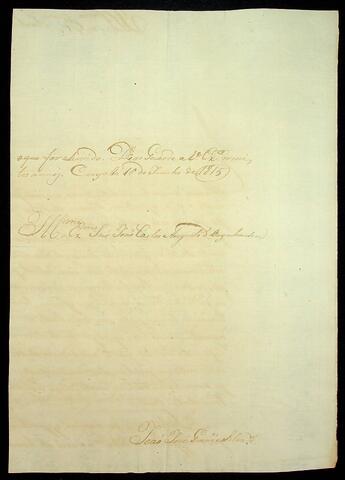 o que for servido. Deos Guarde a V. Exª. mui-
tos annos. 10 de Junho de 1815
Illmo. e Exmo. Snr. João Carlos Augusto d'Oeynhausen
João José